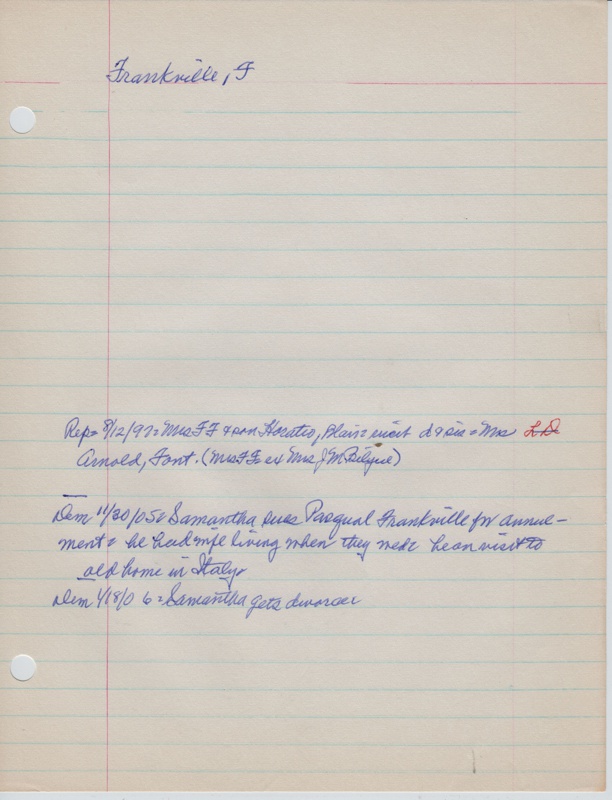 Frankville, F
Rep= 8/12/97= Mrs FF & son Horatio, Plain= visit d & sis = Mrs L D
Arnold, Font. (Mrs FF= ex Mrs J M Bilyue)
Dem 11/30/05= Samantha sues Pasqual Frankville for annul-
ment= he had wife living when they wed= he on visit to
old home in Italy.
Dem 4/18/0 6= Samantha gets divorce